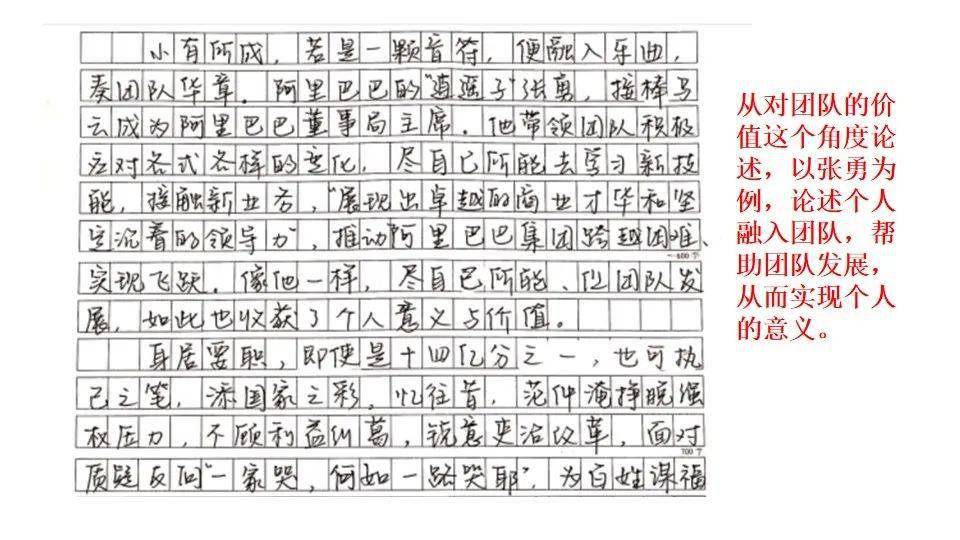 小有所成，若是一颗音符，便融入乐曲，
奏团队华章。阿里巴巴的“逍遥子”张勇，接棒马
云成为阿里巴巴董事局主席。他带领团队积极
应对各式各样的变化，尽自己所能去学习新技
能，接触新业务，“展现出卓越的商业才华和坚
定沉着的领导力”，推动阿里巴巴集团跨越困难、
600字
实现飞跃。像他一样，尽自己所能、促团队发
展，如此也收获了个人意义与价值。
身居要职，即使是十四亿分之一，也可执
己之笔，添国家之彩。忆往昔，范仲淹挣脱强
权压力，不顾利益纠葛，锐意吏治改革，面对
700字
质疑反问“一家哭，何如一路哭耶”，为百姓谋福
从对团队的价
值这个角度论
述，以张勇为
例，论述个人
融入团队，帮
助团队发展，
从而实现个人
的意义。